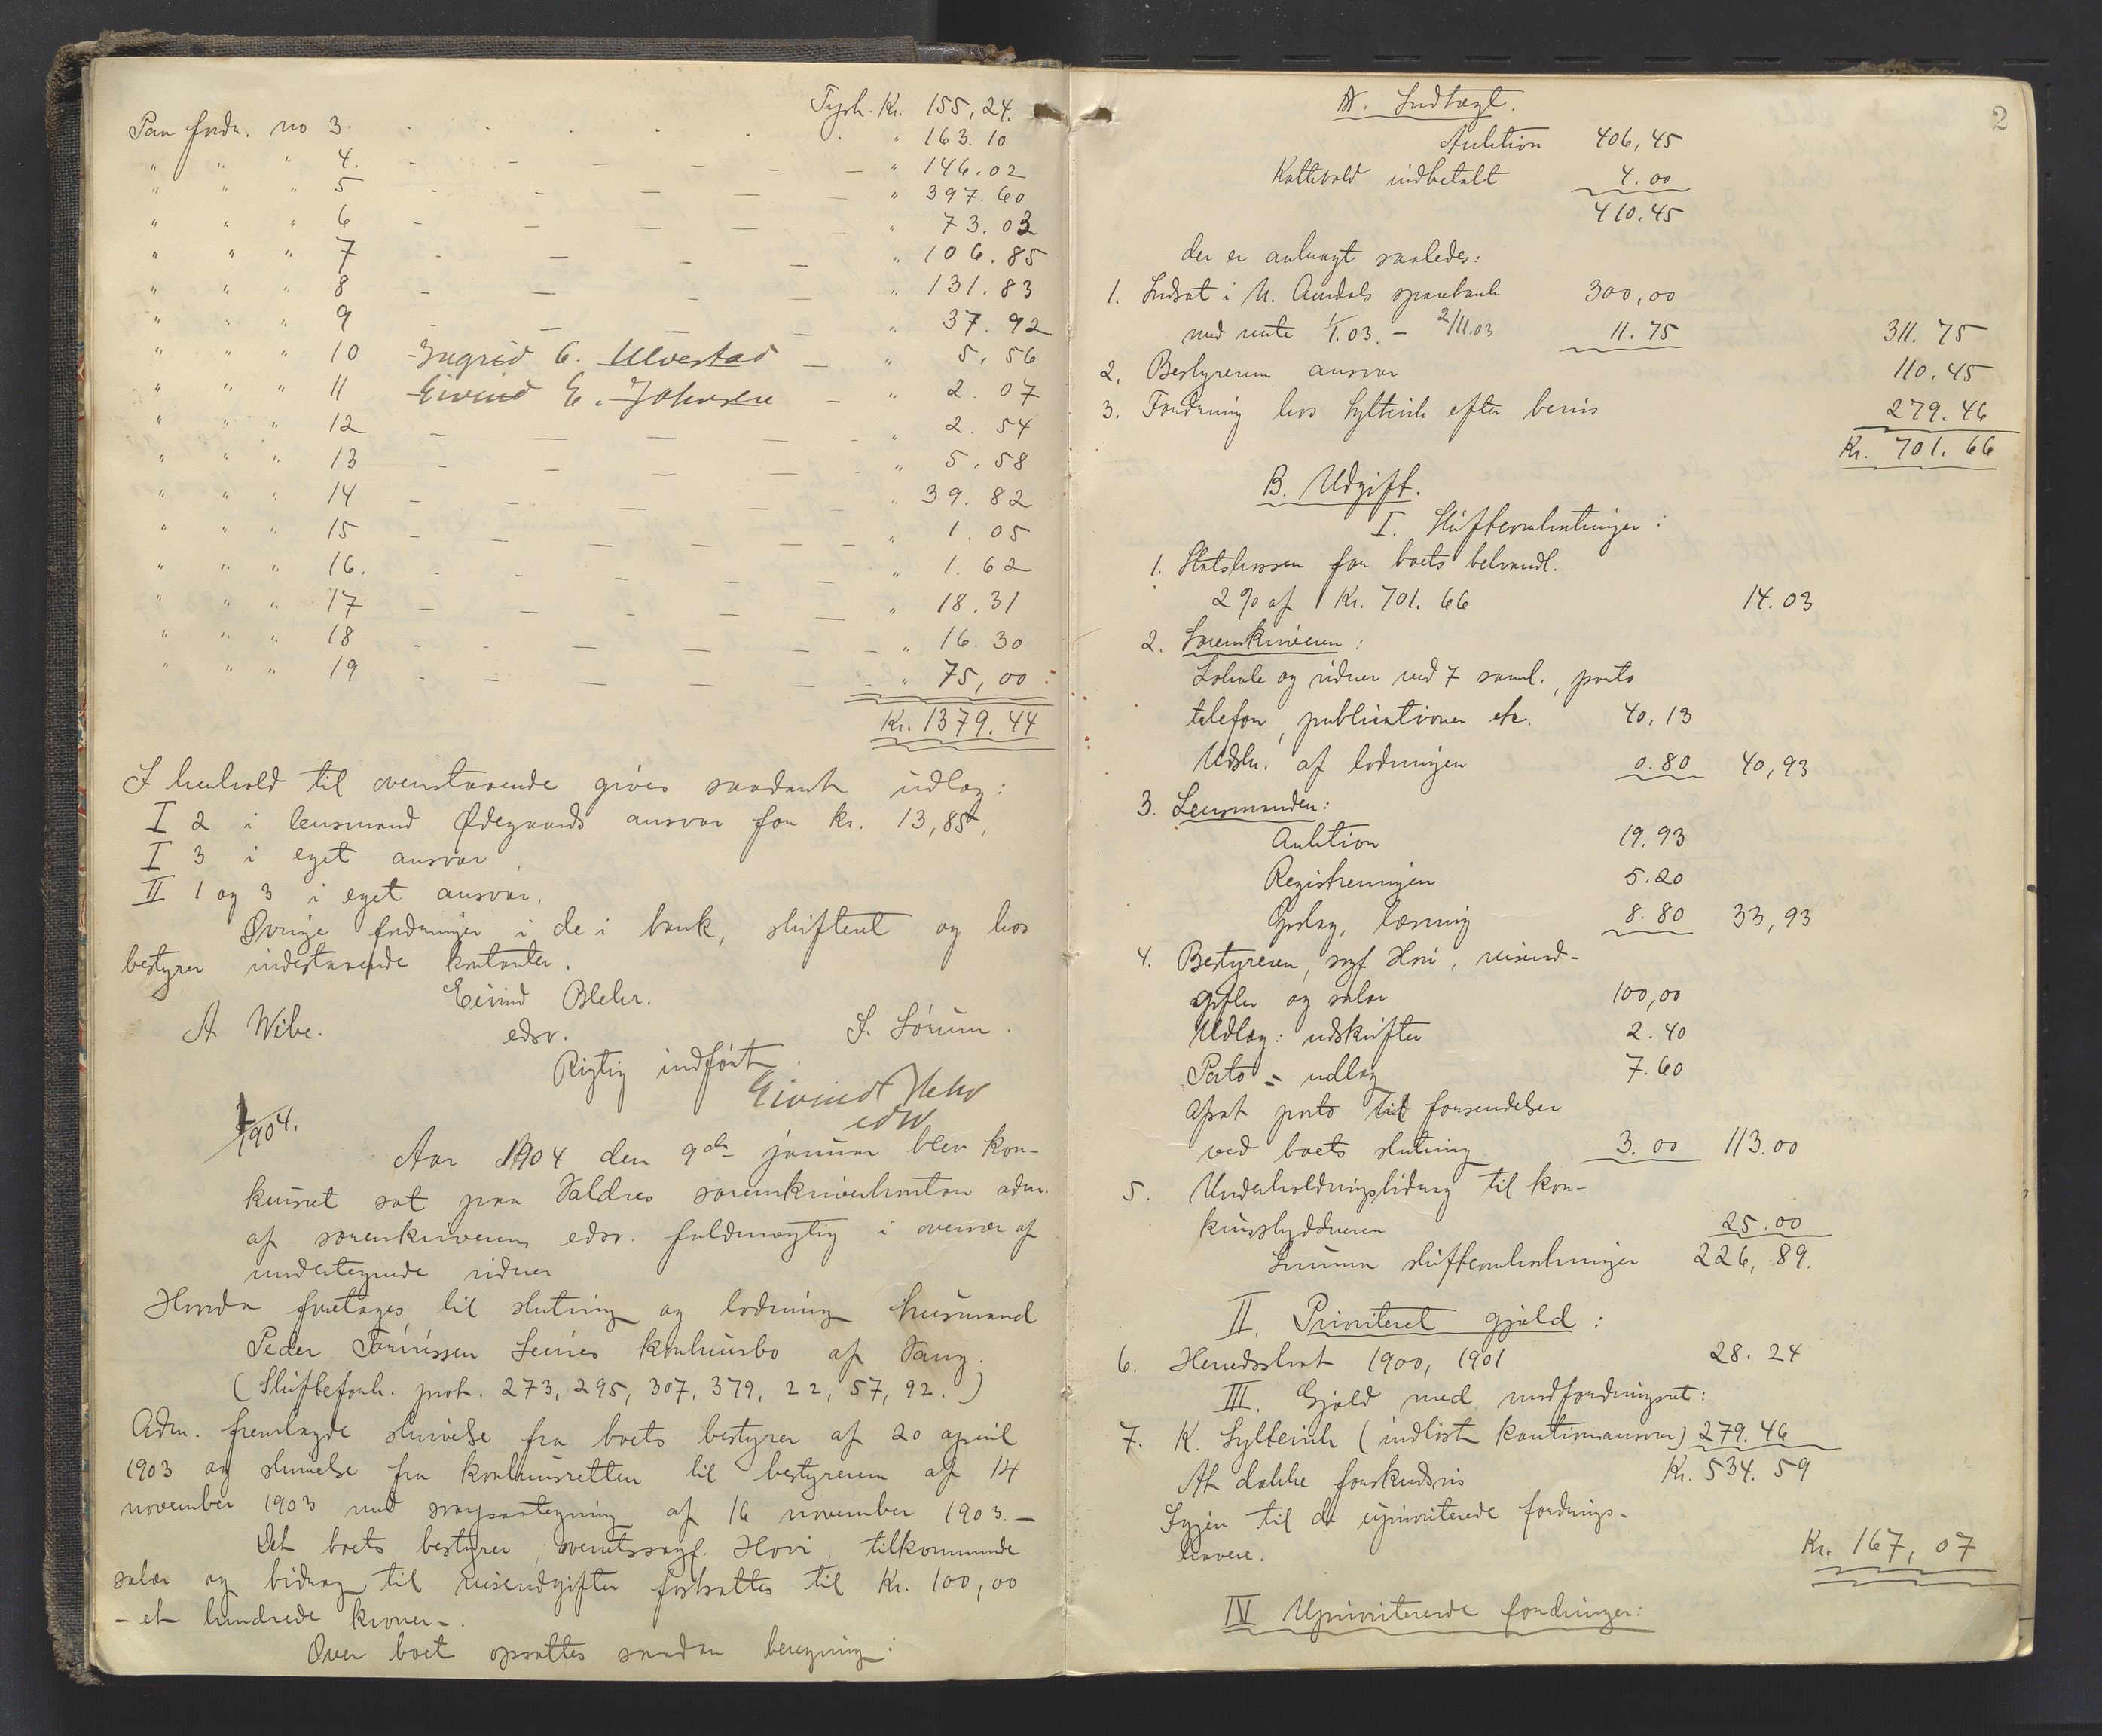 Tysk. Kr. 155,24.
Paa fordr. no 3. " 163.10
" " " 4. " 146.02
" " " 5 " 397.60
" " " 6 " 73.03
" " " 7 " 106.85
" " " 8 " 131.83
" " " 9 " 37.92
" " " 10 Ingrid G. Ulvestad " 5,56
" " " 11 Eivind E. Johnsen " 2.07
" " " 12 " 2.54
" " " 13 " 5.58
" " " 14 " 39.82
" " " 15 " 1.05
" " " 16. " 1.62
" " " 17 " 18.31
" " " 18 " 16.30
" " " 19 " 75,00
Kr. 1379.44
I henhold til ovenstaaende gives saadant udlæg:
I 2 i lensmand Ødegaards ansvar for kr. 13,85,
I 3 i eget ansvar,
II 1 og 3 i eget ansvar,
Øvrige fordringer i de i bank, skifteret og hos
bestyrer indestaaende kontanter.
Eivind Blehr.
A. Wibe. edsv. S. Sørum.
Rigtig indført.
Eivind Blehr
edsv
1904.
Aar 1904 den 9de januar blev kon-
kursret sat paa Valdres sorenskriverkontor adm.
af sorenskriverens edsv. fuldmægtig i overvær af
undertegnede vidner
Hvorda foretages til slutning og lodning husmand
Peder Torinssen Leines konkursbo af Vang.
(Skifteforh. prot. 273, 295, 307, 379, 22, 57, 92.)
Adm. fremlagde skrivelse fra boets bestyrer af 20 april
1903 og skrivelse fra konkursretten til bestyreren af 14
november 1903 med svarpaategning af 16 november 1903.-
Det boets bestyrer, overretssagf. Hovi, tilkommende
salær og bidrag til reiseudgifter fastsattes til Kr. 100,00
- et hundrede kroner -.
Over boet opsattes saadan beregning:
2
A. Indtægt.
Auktion 406,45
Kattevold indbetalt 4.00
410.45
der er anbragt saaledes:
1. Indsat i N. Aurdals sparebank 300,00
med rente 1/1.03. - 2/11.03 11.75 311.75
2. Bestyrerens ansvar 110.45
3. Fordring hos Syltevik efter bevis 279.46
Kr. 701.66
B. Udgift.
I. Skifteomkostninger:
1. Statskassen for boets behandl.
2 % af Kr. 701.66 14.03
2. Sorenskriveren:
Lokale og vidner ved 7 saml., porto
telefon, publikationer etc. 40,13
Udskr. af lodningen 0.80 40,93
3. Lensmanden:
Auktion 19.93
Registreringen 5.20
Opslag, læsning 8.80 33,93
4. Bestyreren, sagf Hovi, reiseud-
gifter og salær 100,00
Udlæg: udskrifter 2.40
Porto = udlæg 7.60
afsat porto til forsendelser
ved boets slutning 3.00 113.00
5. Underholdningsbidrag til kon-
kursskyldneren 25.00
Summa skifteomkostninger 226,89.
II. Prioriteret gjæld:
6. Herredsskat 1900, 1901 28.24
III. Gjæld med modfordringsret:
7. K. Syltevik (indløst kautionsansvar) 279.46
At dække forskudsvis Kr. 534.59
Igjen til de uprioriterede fordrings-
havere. Kr. 167,07
IV Uprioriterede fordringer: